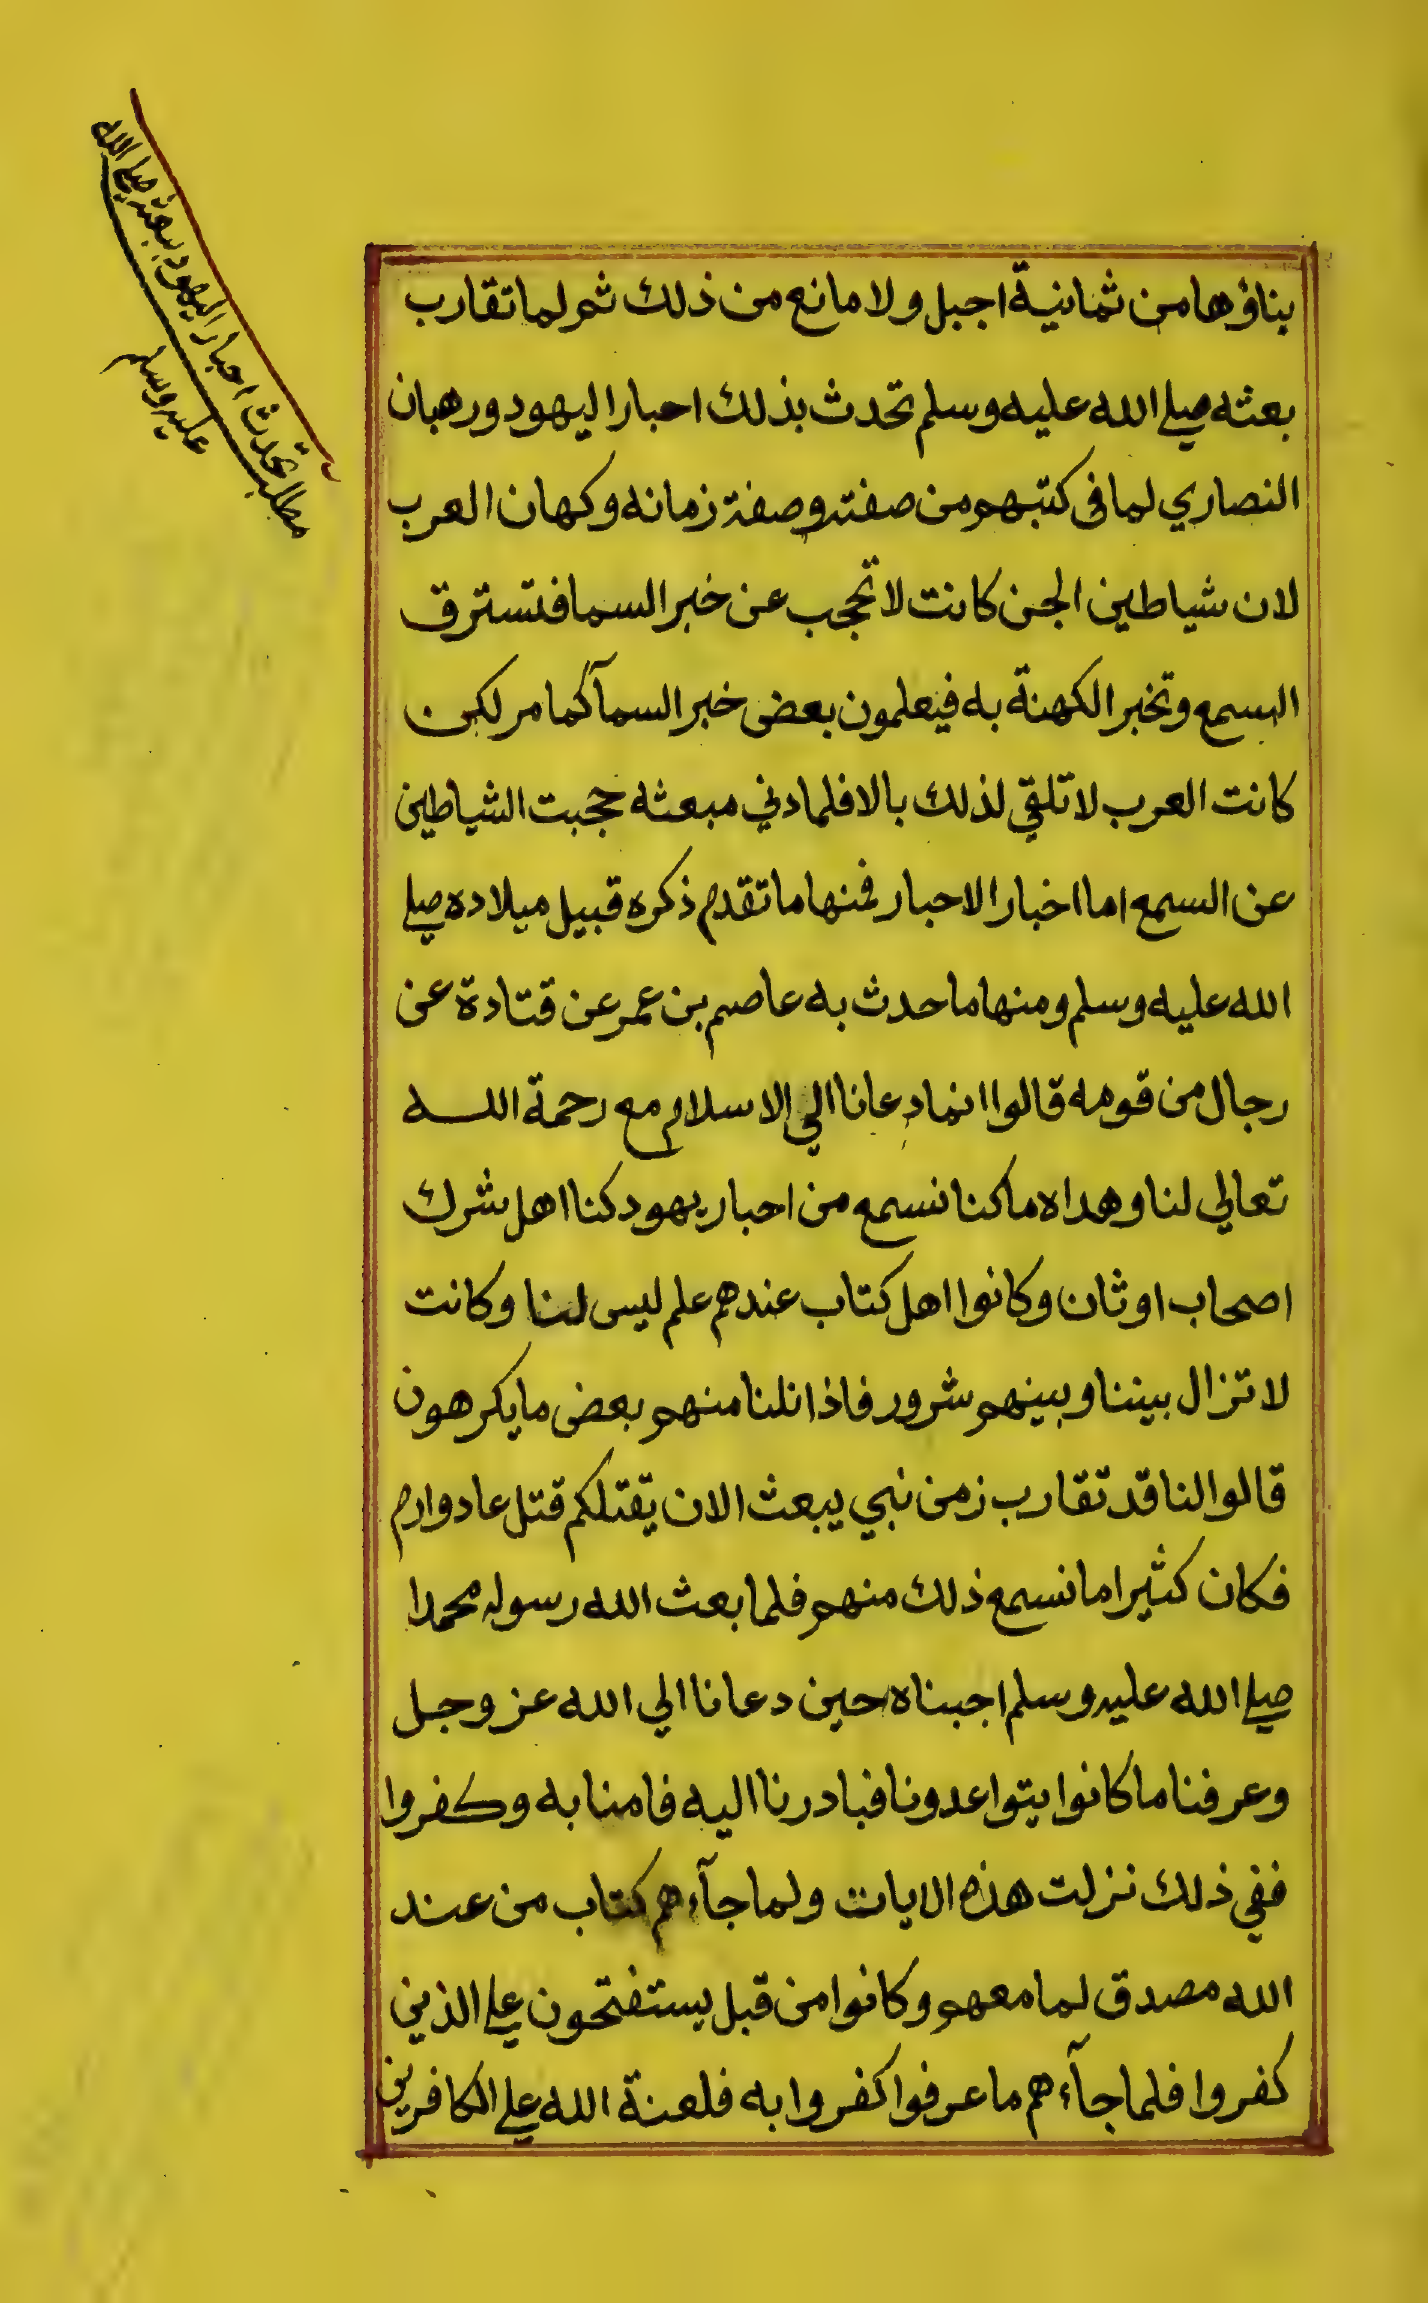 بناؤها من ثمانية اجبل ولا مانع من ذلك ثم لما تقارب
بعثه صلى الله عليه وسلم تحدث بذلك احبار اليهود ورهبان
النصاري لما فى كتبهم من صفته وصفة زمانه وكهان العرب
لان شياطين الجن كانت لا تحجب عن خبر السما فتسترق
السمع وتخبر الكهنة به فيعلمون بعض خبر السمآ كما مر لكن
كانت العرب لا تلقي لذلك بالا فلما دني مبعثه حجبت الشياطين
عن السمع اما اخبار الاحبار فمنها ما تقدم ذكره قبيل ميلاده صلى
الله عليه وسلم ومنها ما حدث به عاصم بن عمر عن قتادة عن
رجال من قومه قالوا انما دعانا الي الاسلام مع رحمة الله
تعالي لنا وهداه ما كنا نسمع من احبار يهود كنا اهل شرك
اصحاب اوثان وكانوا اهل كتاب عندهم علم ليس لنا وكانت
لا تزال بيننا وبينهم شرور فاذا نلنا منهم بعض ما يكرهون
قالوا لنا قد تقارب زمن نبي يبعث الان يقتلكم قتل عاد وارم
فكان كثيرا ما نسمع ذلك منهم فلما بعث الله رسوله محمدا
صلى الله عليه وسلم اجبناه حين دعانا الي الله عز وجل
وعرفنا ما كانوا يتواعدونا فبادرنا اليه فامنا به وكفروا
ففي ذلك نزلت هذه الايات ولما جآءهم كتاب من عند
الله مصدق لما معهم وكانوا من قبل يستفتحون على الذين
كفروا فلما جآءهم ما عرفوا كفروا به فلعنة الله على الكافرين
مطلب تحدث احبار اليهود ببعثه صلى الله
عليه وسلم